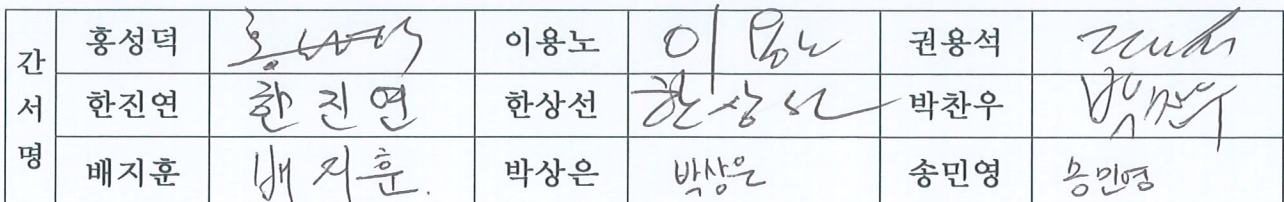 간서명
홍성덕 이용노 이용노 권용석
한진연 한진연 한상선 한상선 박찬우 박찬우
배지훈 배지훈. 박상은 박상은 송민영 송민영